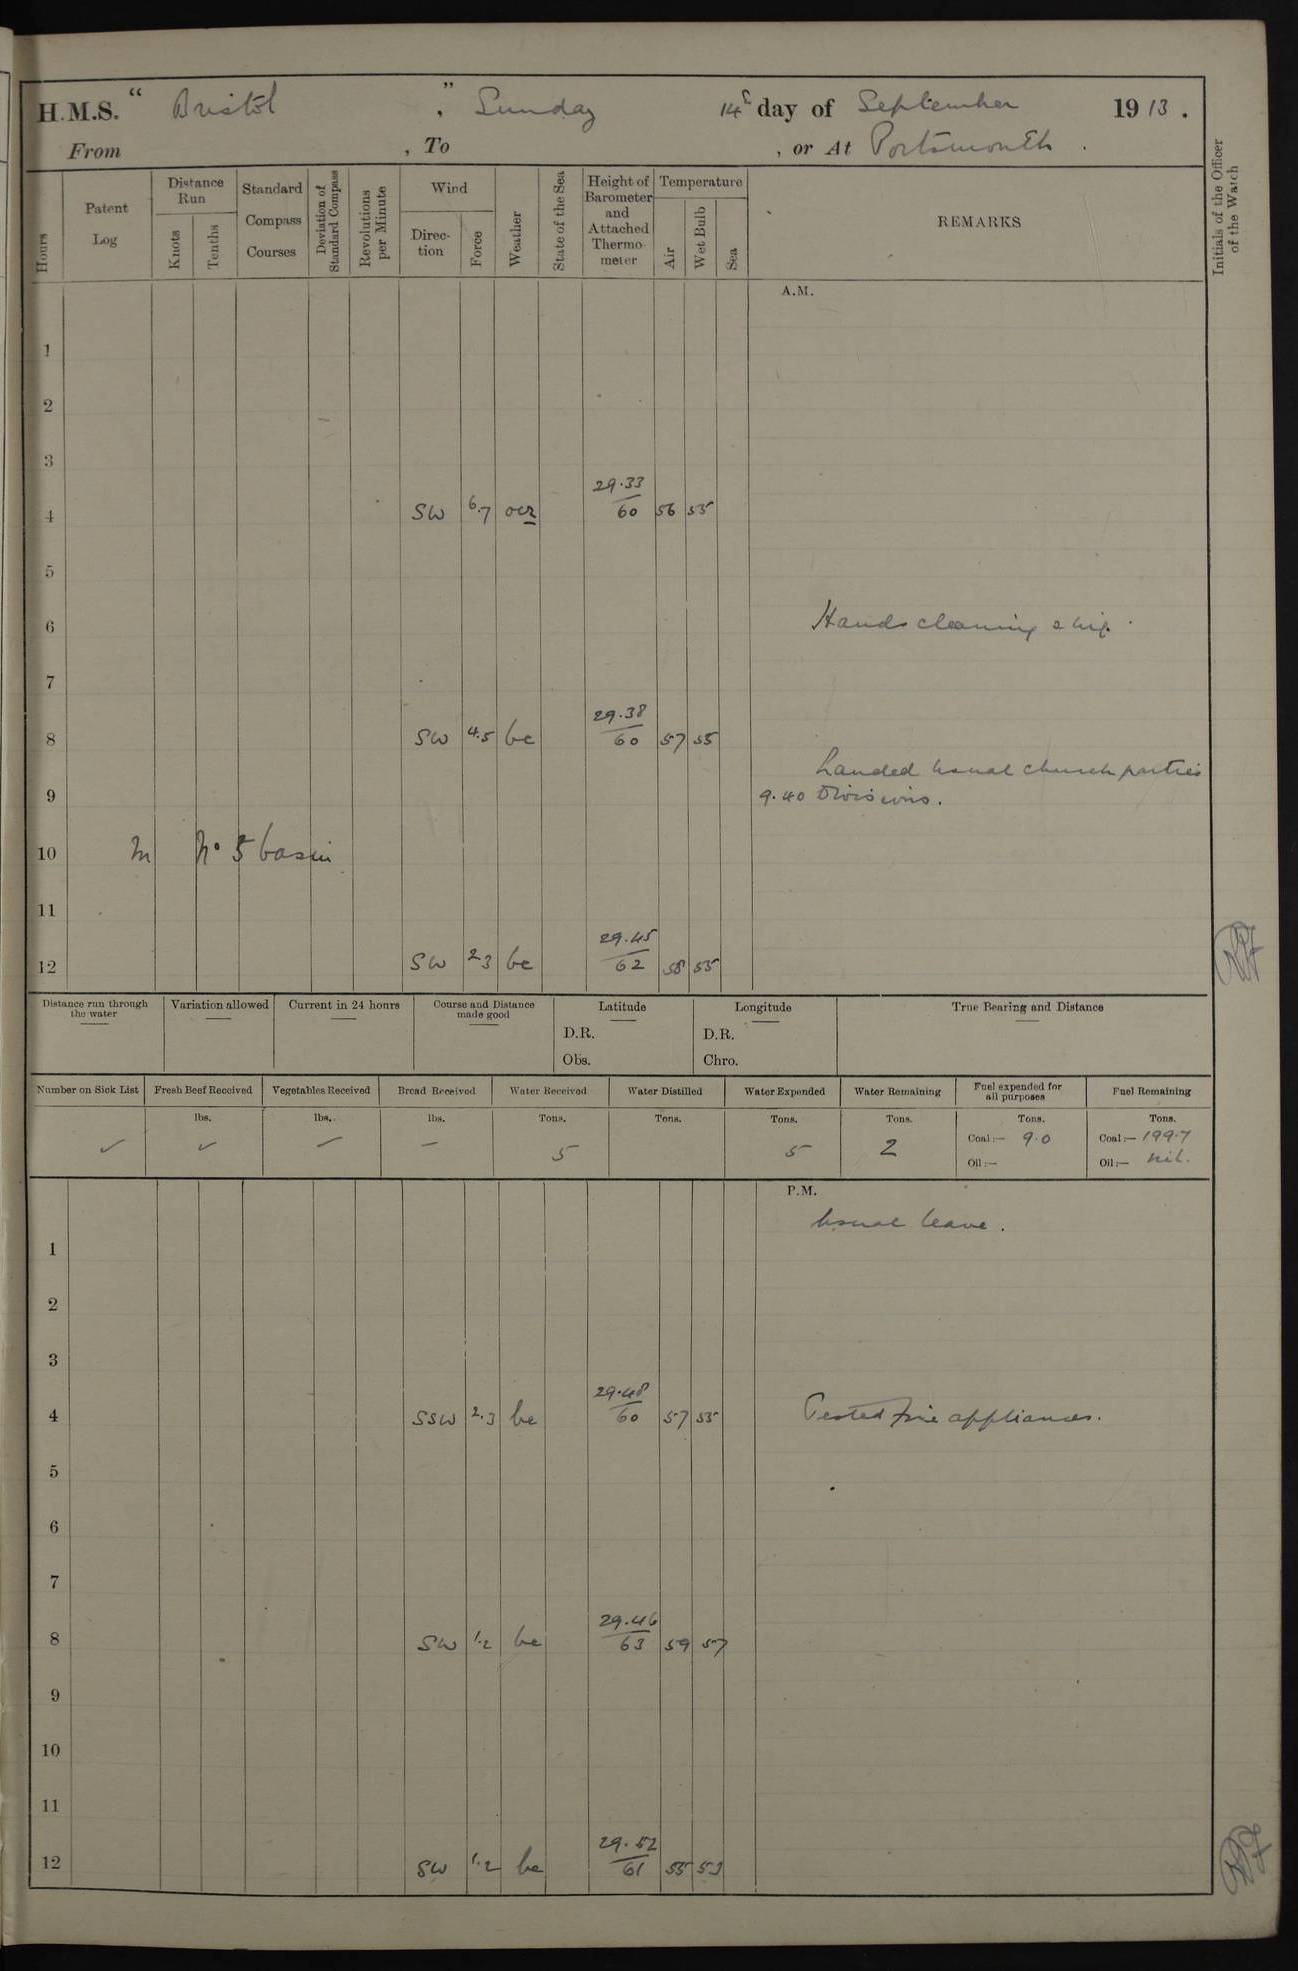 H.M.S. “ Bristol ” , Sunday 14th day of September 1913 .
From , To , or At Portsmouth .
Hours
Patent Log
Distance Run
Knots
Tenths
Standard Compass Courses
Deviation of Standard Compass
Revolutions per Minute
Wind
Direction
Force
Weather
State of the Sea
Height of Barometer and Attached Thermometer
Temperature
Air
Wet Bulb
Sea
REMARKS
Initials of the Officer of the Watch
A.M.
1
2
3
29.33
4 SW 6.7 ocr 60 56 55
5
6 Hands cleaning ship.
7
29.38
8 SW 4.5 bc 60 57 55
Landed usual church parties
9 9.40 Divisions.
10 In No 5 basin
11
29.45
12 SW 2.3 bc 62 58 55
Distance run through the water
Variation allowed
Current in 24 hours
Course and Distance made good
Latitude
D.R.
Obs.
Longitude
D.R.
Chro.
True Bearing and Distance
Number on Sick List
Fresh Beef Received
Vegetables Received
Bread Received
Water Received
Water Distilled
Water Expended
Water Remaining
Fuel expended for all purposes
Fuel Remaining
lbs. lbs. lbs. Tons. Tons. Tons. Tons. Tons. Tons.
✓ ✓ – – 5 5 2 Coal :— 9.0 Coal :— 1997
Oil :— Oil :— Nil.
P.M.
Usual leave.
1
2
3
29.48
4 SSW 2.3 bc 60 57 55 Tested fire appliances.
5
6
7
29.46
8 SW 1.2 bc 63 59 57
9
10
11
29.52
12 SW 1.2 bc 61 55 53